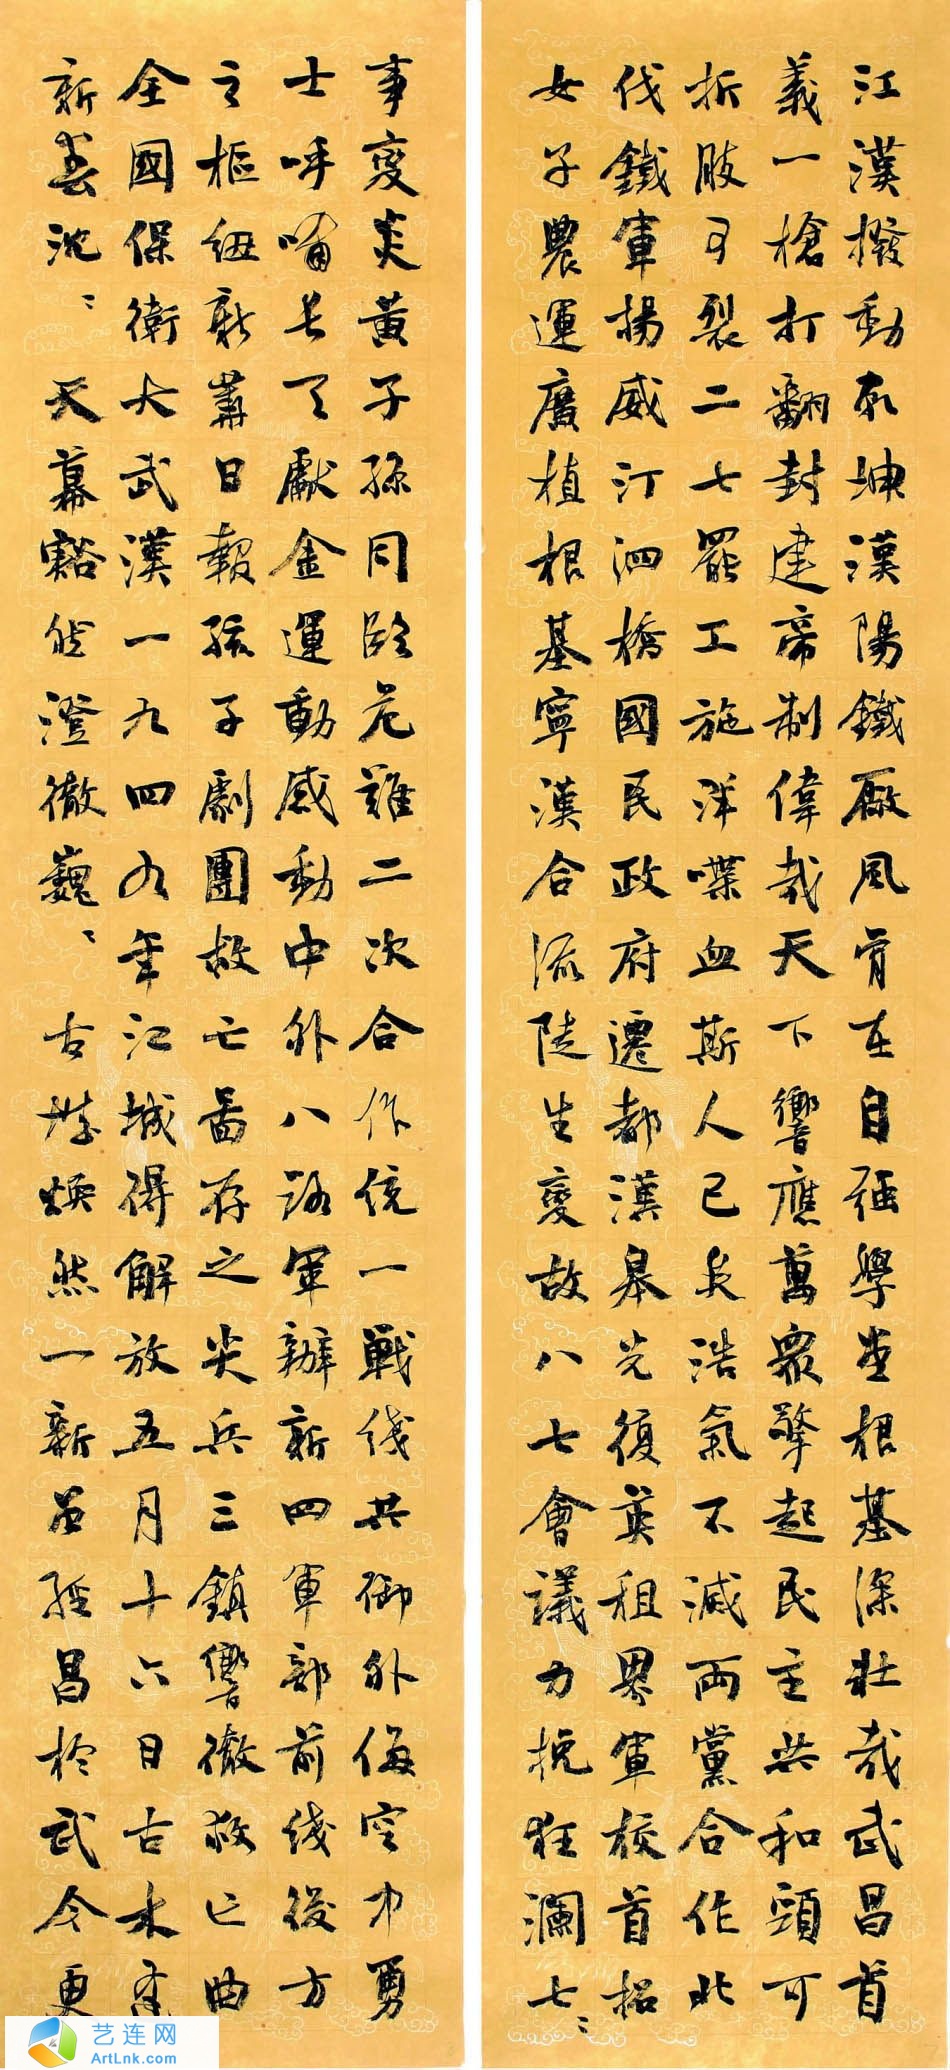 江漢撥動乾坤漢陽鐵厰風骨在自強學堂根基深壯哉武昌首
義一槍打翻封建帝制偉哉天下響應萬眾擎起民主共和頭可
折肢可裂二七罷工施洋喋血斯人已矣浩氣不滅兩黨合作北
伐鐵軍揚威汀泗橋國民政府遷都漢皋光復英租界軍校首招
女子農運廣植根基寧漢合流陡生變故八七會議力挽狂瀾七〻
事變炎黃子孫同臨危難二次合作統一戰綫共御外侮空中勇
士呼嘯長天獻金運動感動中外八路軍辦新四軍部前綫後方
之樞紐新華日報孩子劇團救亡圖存之尖兵三鎮響徹救亡曲
全國保衛大武漢一九四九年江城得解放五月十六日古木逢
新春沈〻天幕豁然澄徹巍〻古城煥然一新經昌於武今更
艺连网
ArtLnk.com